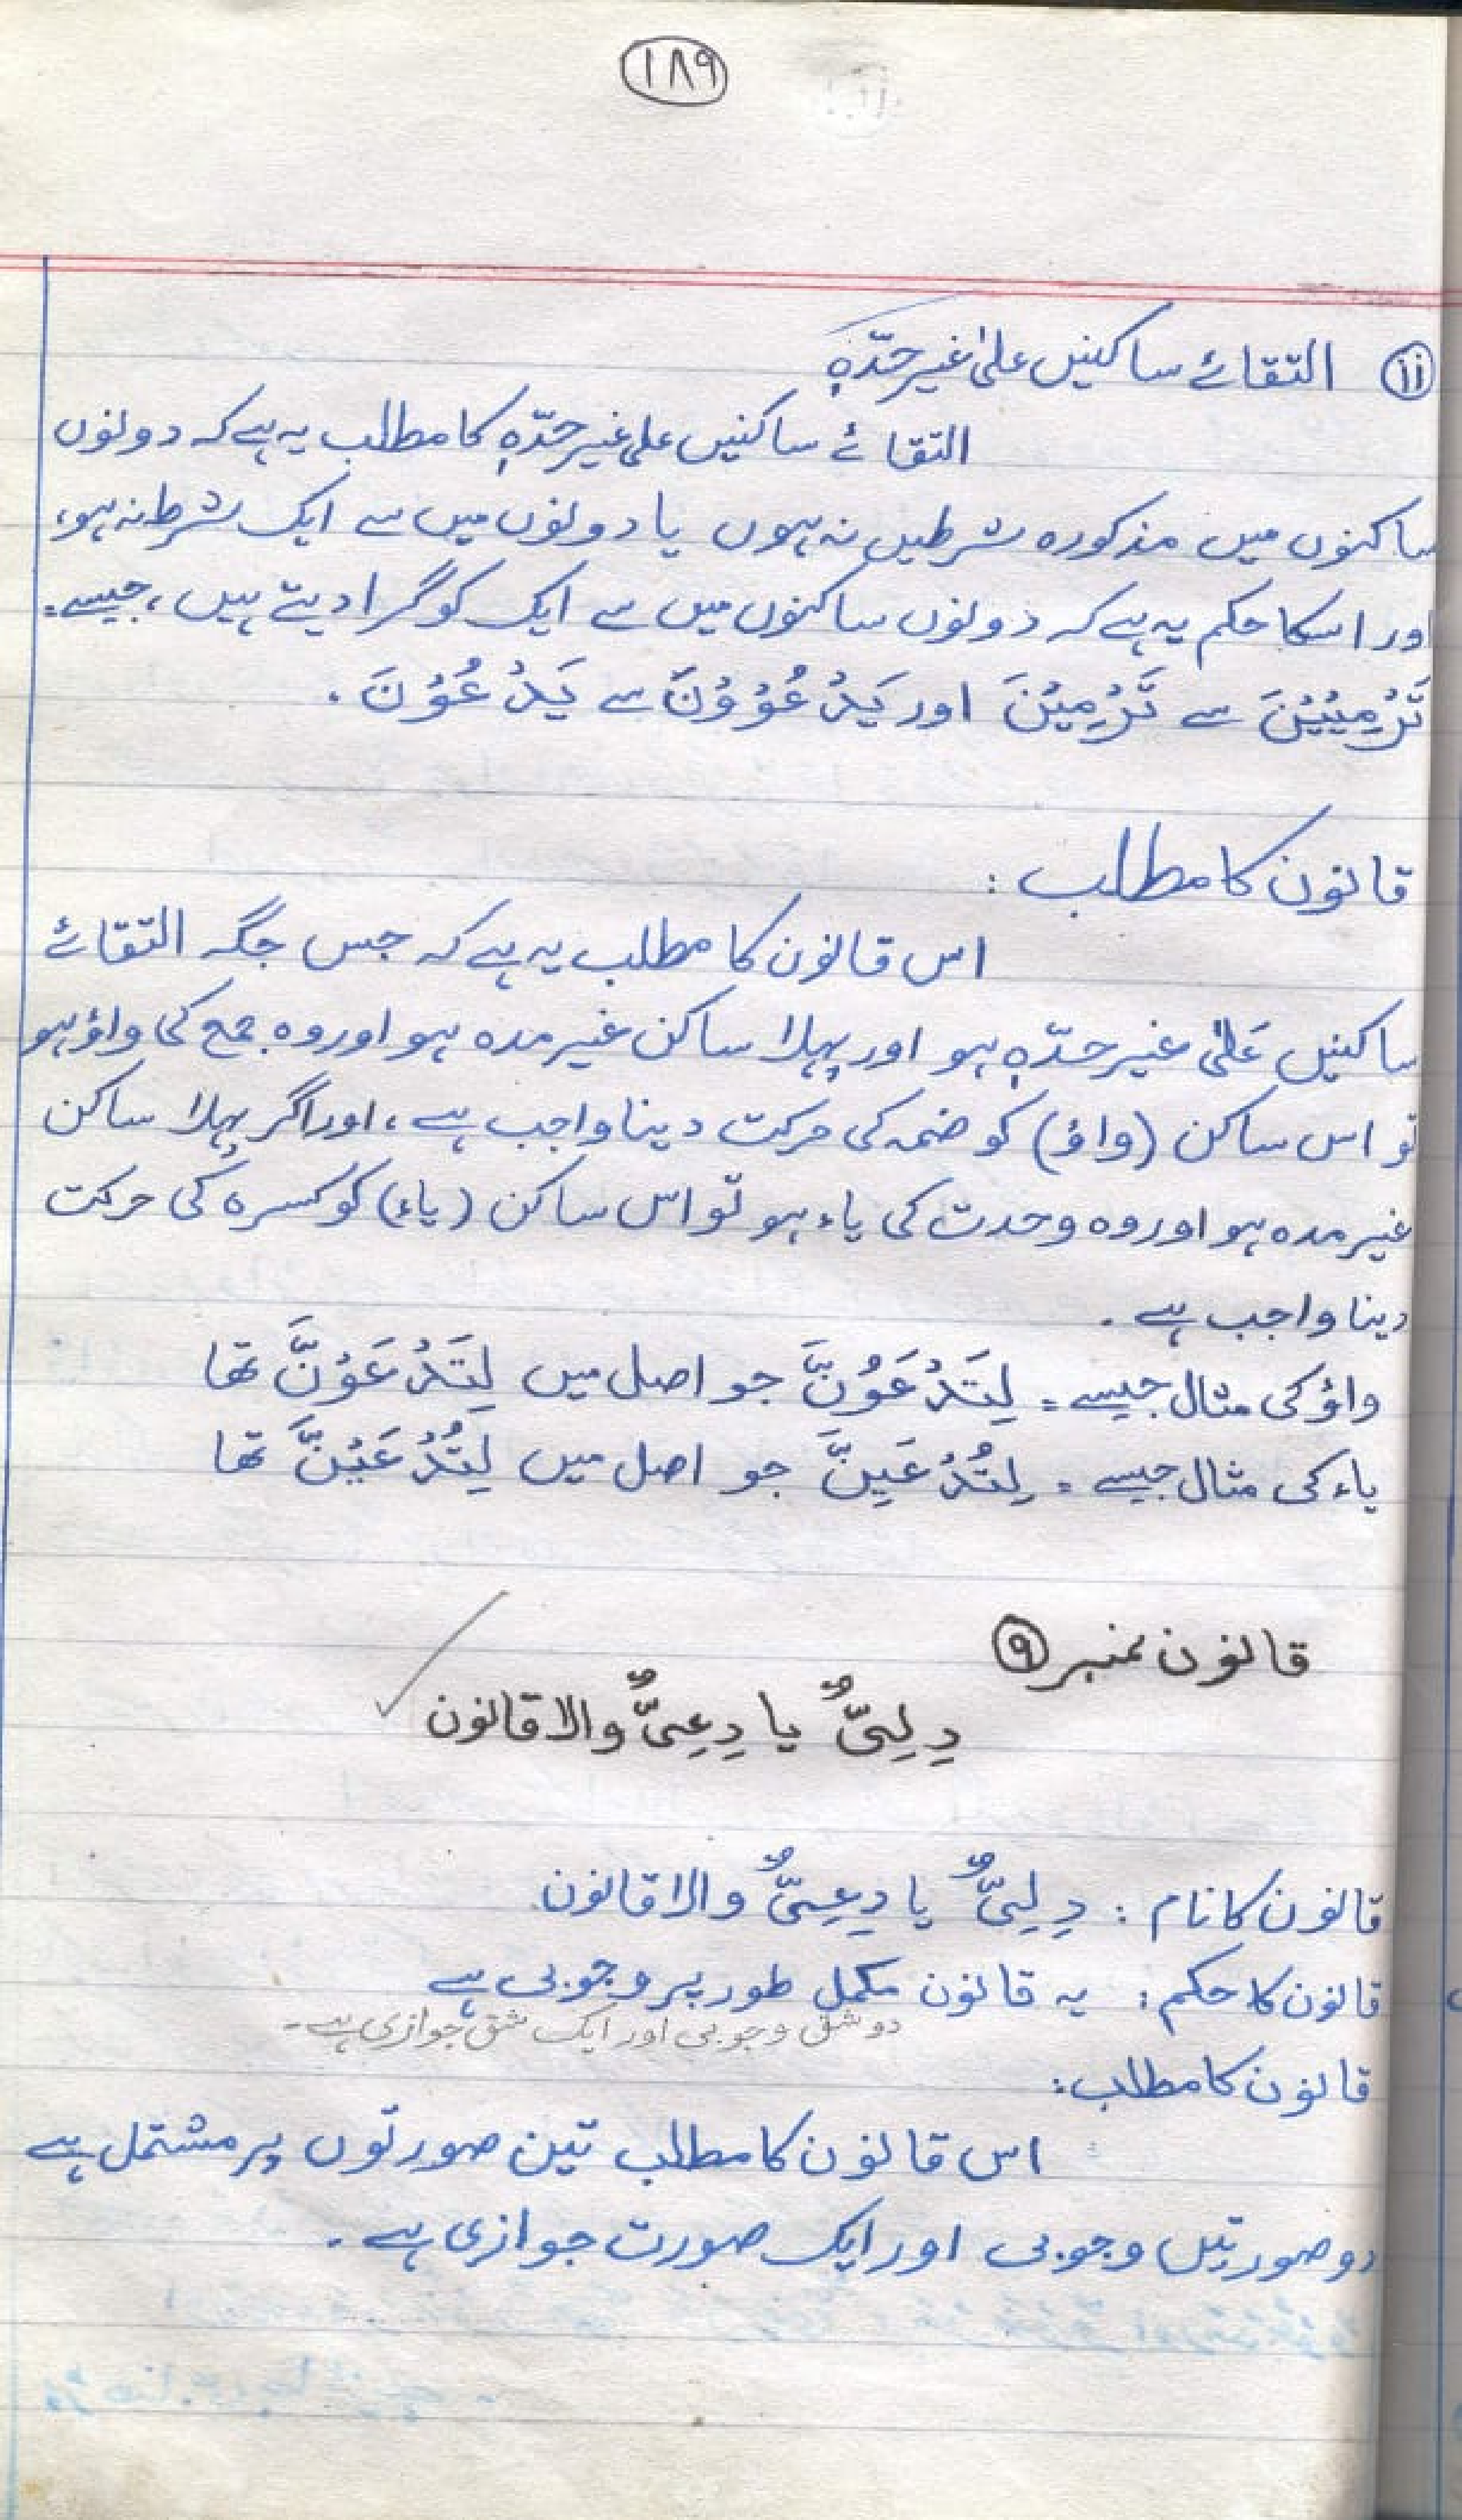 ۱۸۹
(ii) التقائے ساکنین علیٰ غیر حدّہٖ
التقائے ساکنین علیٰ غیر حدّہٖ کا مطلب یہ ہے کہ دونوں
ساکنوں میں مذکورہ شرطیں نہ ہوں یا دونوں میں سے ایک شرط نہ ہو،
اور اسکا حکم یہ ہے کہ دونوں ساکنوں میں سے ایک کو گرا دیتے ہیں، جیسے:
تَرْمِيْيْنَ سے تَرْمِيْنَ اور يَدْعُوْوْنَ سے يَدْعُوْنَ ۔
قانون کا مطلب :
اس قانون کا مطلب یہ ہے کہ جس جگہ التقائے
ساکنین عَلیٰ غیر حدّہٖ ہو اور پہلا ساکن غیر مدہ ہو اور وہ جمع کی واؤ ہو
تو اس ساکن (واؤ) کو ضمہ کی حرکت دینا واجب ہے، اور اگر پہلا ساکن
غیر مدہ ہو اور وہ وحدت کی یاء ہو تو اس ساکن (یاء) کو کسرہ کی حرکت
دینا واجب ہے ۔
واؤ کی مثال جیسے : لِتَدْعَوُنَّ جو اصل میں لِتَدْعَوْنَّ تھا
یاء کی مثال جیسے : لِتُدْعَيِنَّ جو اصل میں لِتُدْعَيْنَّ تھا
قانون نمبر ۹
دِلِیٌّ یا دِعِیٌّ والا قانون
قانون کا نام : دِلِیٌّ یا دِعِیٌّ والا قانون
قانون کا حکم : یہ قانون مکمل طور پر وجوبی ہے
دو شق وجوبی اور ایک شق جوازی ہے ۔
قانون کا مطلب :
اس قانون کا مطلب تین صورتوں پر مشتمل ہے
دو صورتیں وجوبی اور ایک صورت جوازی ہے ۔